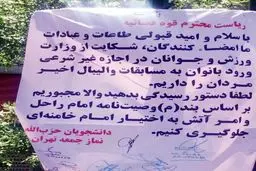 ریاست محترم قوه قضائیه
باسلام و امید قبولی طاعات و عبادات
ما امضاء کنندگان، شکایت از وزارت
ورزش و جوانان در اجازه غیر شرعی
ورود بانوان به مسابقات والیبال اخیر
مردان را داریم.
لطفا دستور رسیدگی بدهید والا مجبوریم
بر اساس بند (م) وصیت‌نامه امام راحل
و امر آتش به اختیار امام خامنه‌ای
جلوگیری کنیم.
دانشجویان حزب‌الله
نماز جمعه تهران